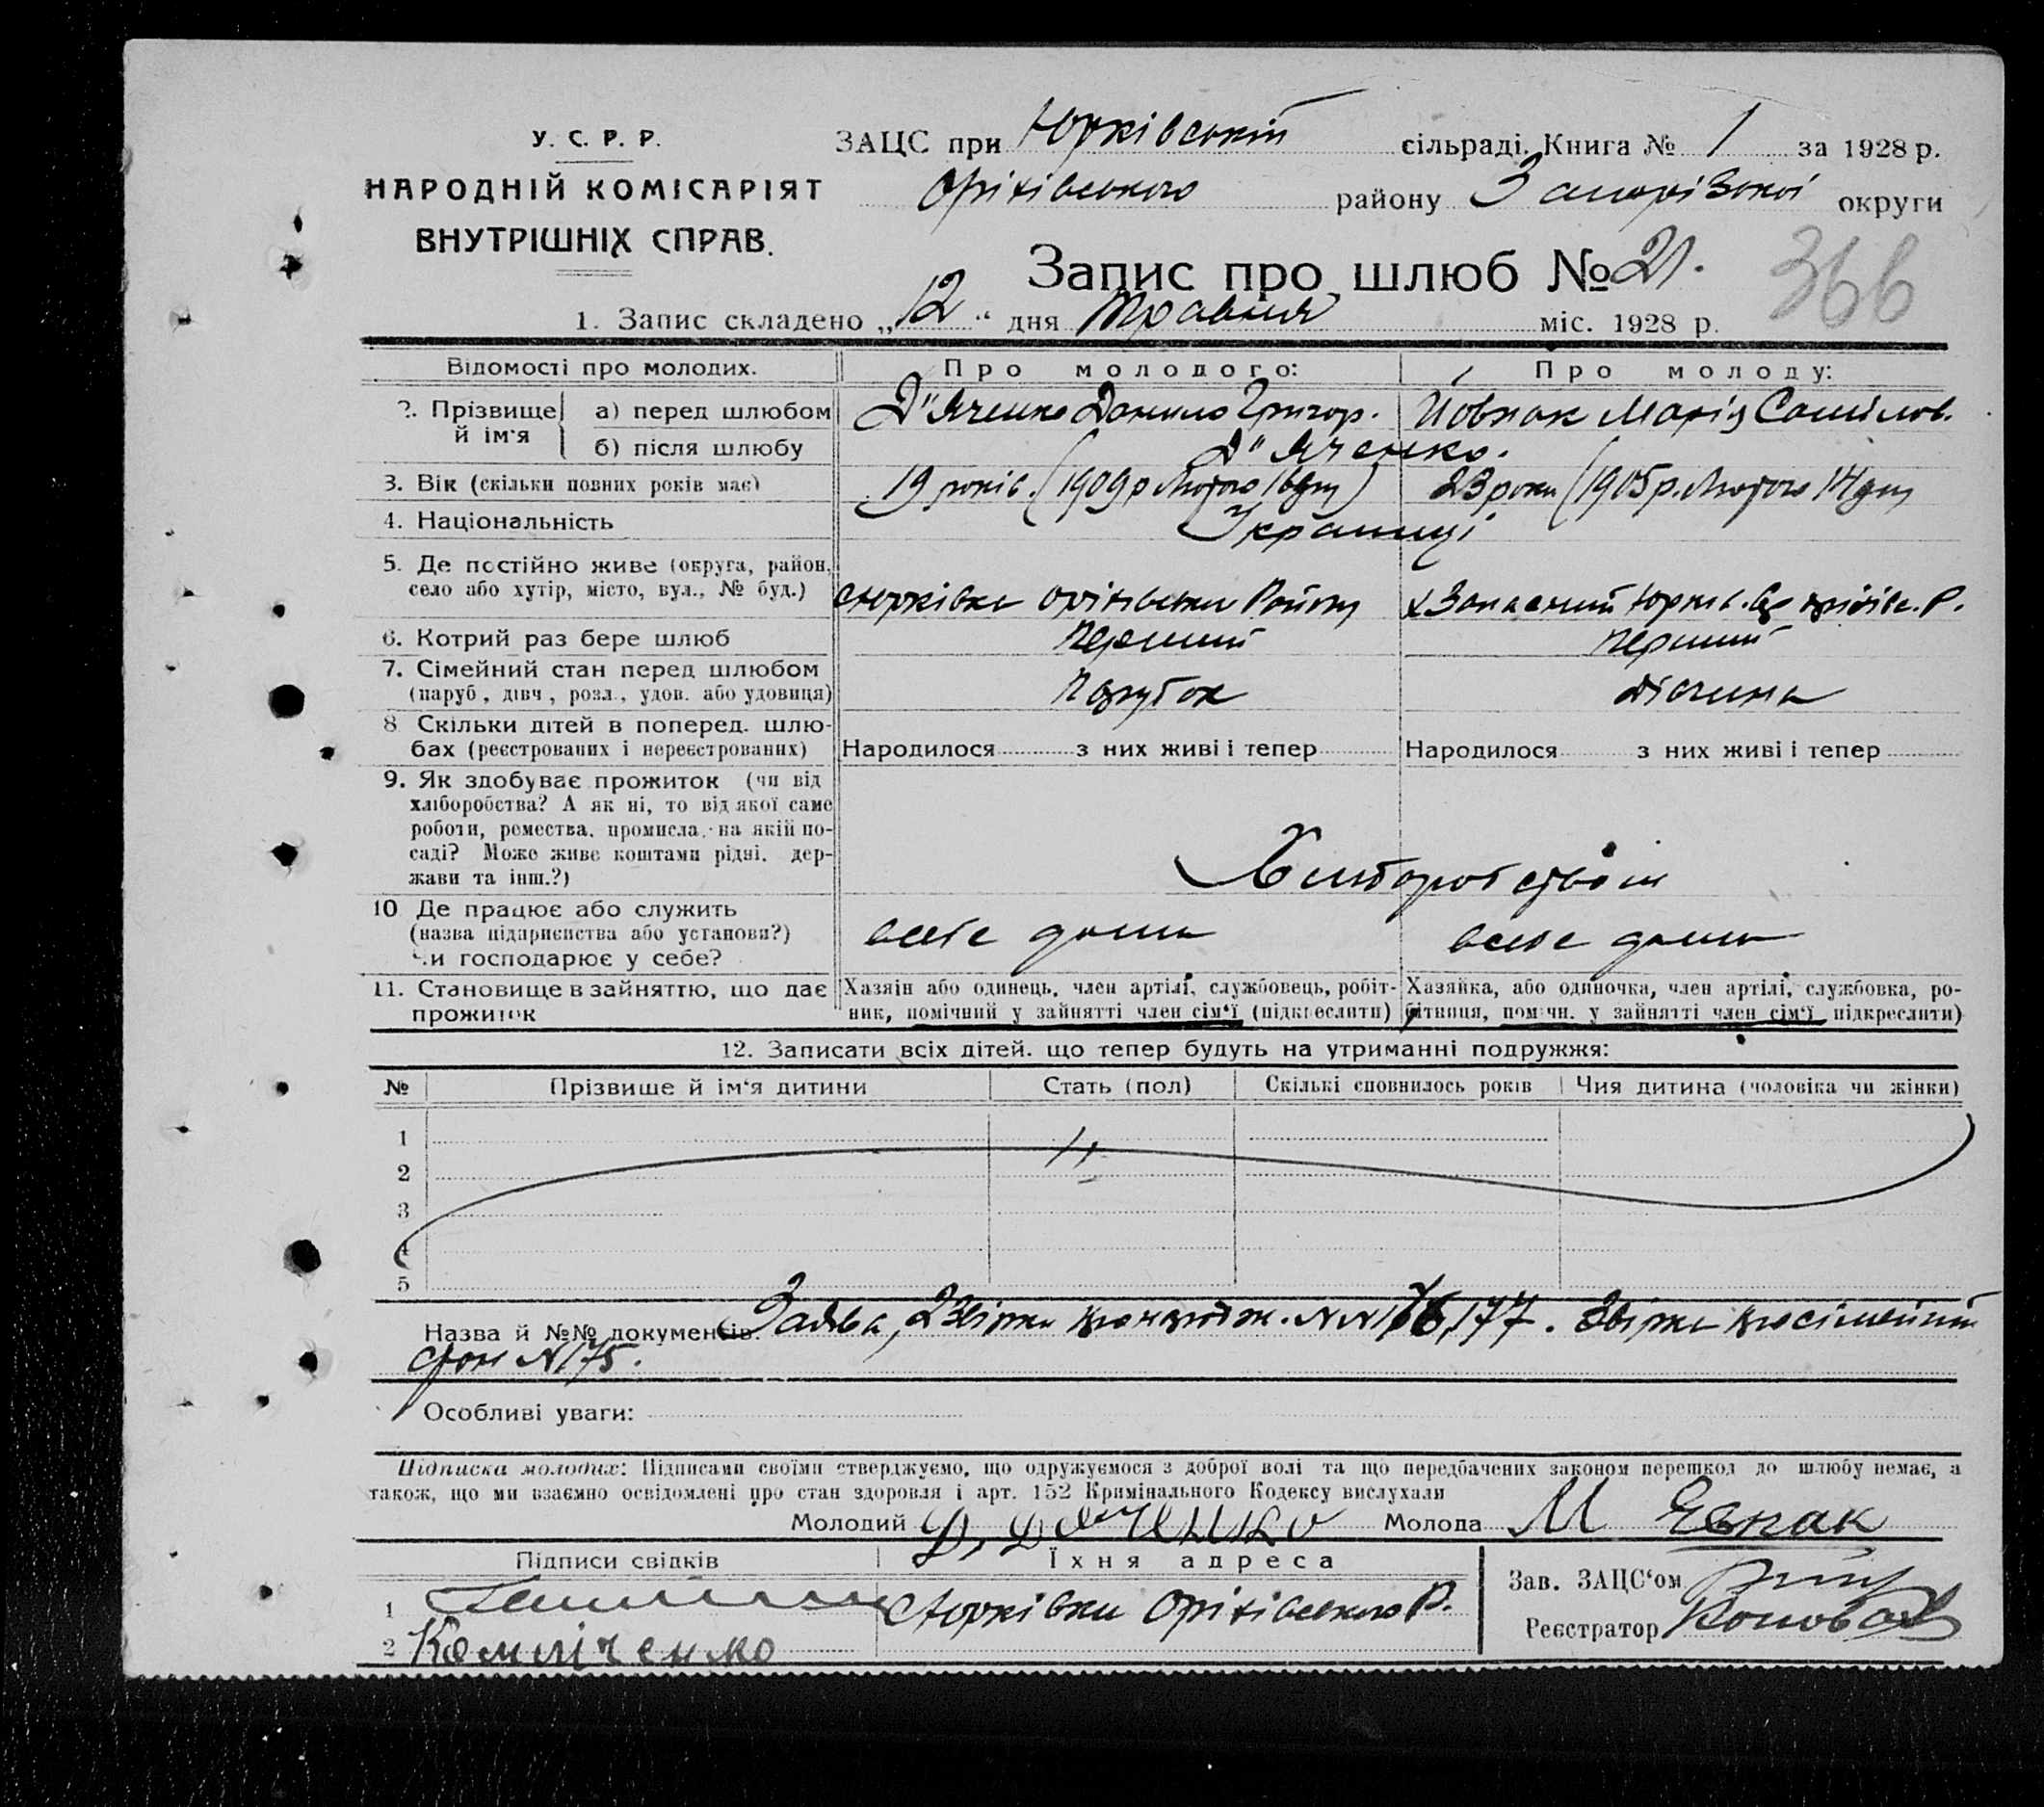 У. С. Р. Р.
НАРОДНІЙ КОМІСАРІЯТ
ВНУТРІШНІХ СПРАВ.
ЗАЦС при Юрківській сільраді. Книга № 1 за 1928 р.
Оріхівського району Запорізької округи
Запис про шлюб № 21.
366
1. Запис складено „12“ дня Травня міс. 1928 р.
Відомості про молодих. Про молодого: Про молоду:
2. Прізвище й ім'я а) перед шлюбом Д"яченко Данило Григор. Йовпак Марія Самійлов.
б) після шлюбу Д"яченко.
3. Вік (скільки повних років має) 19 років. (1909 р Лютого 16 дня) 23 роки (1905 р. Лютого 14 дня
4. Національність Українці
5. Де постійно живе (округа, район,
село або хутір, місто, вул., № буд.) Юрківка Оріхівськи Району х Запасний Юрків. Оріхів. Р.
6. Котрий раз бере шлюб перший перший
7. Сімейний стан перед шлюбом
(паруб, дівч, розл., удов. або удовиця) парубок дівчина
8 Скільки дітей в поперед. шлю-
бах (реєстрованих і нереєстрованих) Народилося з них живі і тепер Народилося з них живі і тепер
9. Як здобуває прожиток (чи від
хліборобства? А як ні, то від якої саме
роботи, ремества, промисла, на якій по-
саді? Може живе коштами рідні, дер-
жави та інш.?) Хліборобством
10 Де працює або служить
(назва підприємства або установи?)
чи господарює у себе? всебе дома всебе дома
11. Становище в зайняттю, що дає
прожиток
Хазяїн або одинець, член артілі, службовець, робіт-
ник, помічний у зайнятті член сім'ї (підкреслити)
Хазяйка, або одиночка, член артілі, службовка, ро-
бітниця, помічн. у зайнятті член сім'ї підкреслити)
12. Записати всіх дітей, що тепер будуть на утриманні подружжя:
№ Прізвище й ім'я дитини Стать (пол) Скількі сповнилось років Чия дитина (чоловіка чи жінки)
1
2
3
4
5
Назва й №№ документів: Заява, 2 Звірки NN 176, 177. Звірка просімейний
стан N 175.
Особливі уваги:
Підписка молодих: Підписами своїми стверджуємо, що одружуємося з доброї волі та що передбачених законом перешкод до шлюбу немає, а
також, що ми взаємно освідомлені про стан здоровля і арт. 152 Кримінального Кодексу вислухали
Молодий Д. Дяченко Молода М Євпак
Підписи свідків Їхня адреса
1 Юрківки Оріхівського Р.
2
Зав. ЗАЦС'ом
Реєстратор Коновал